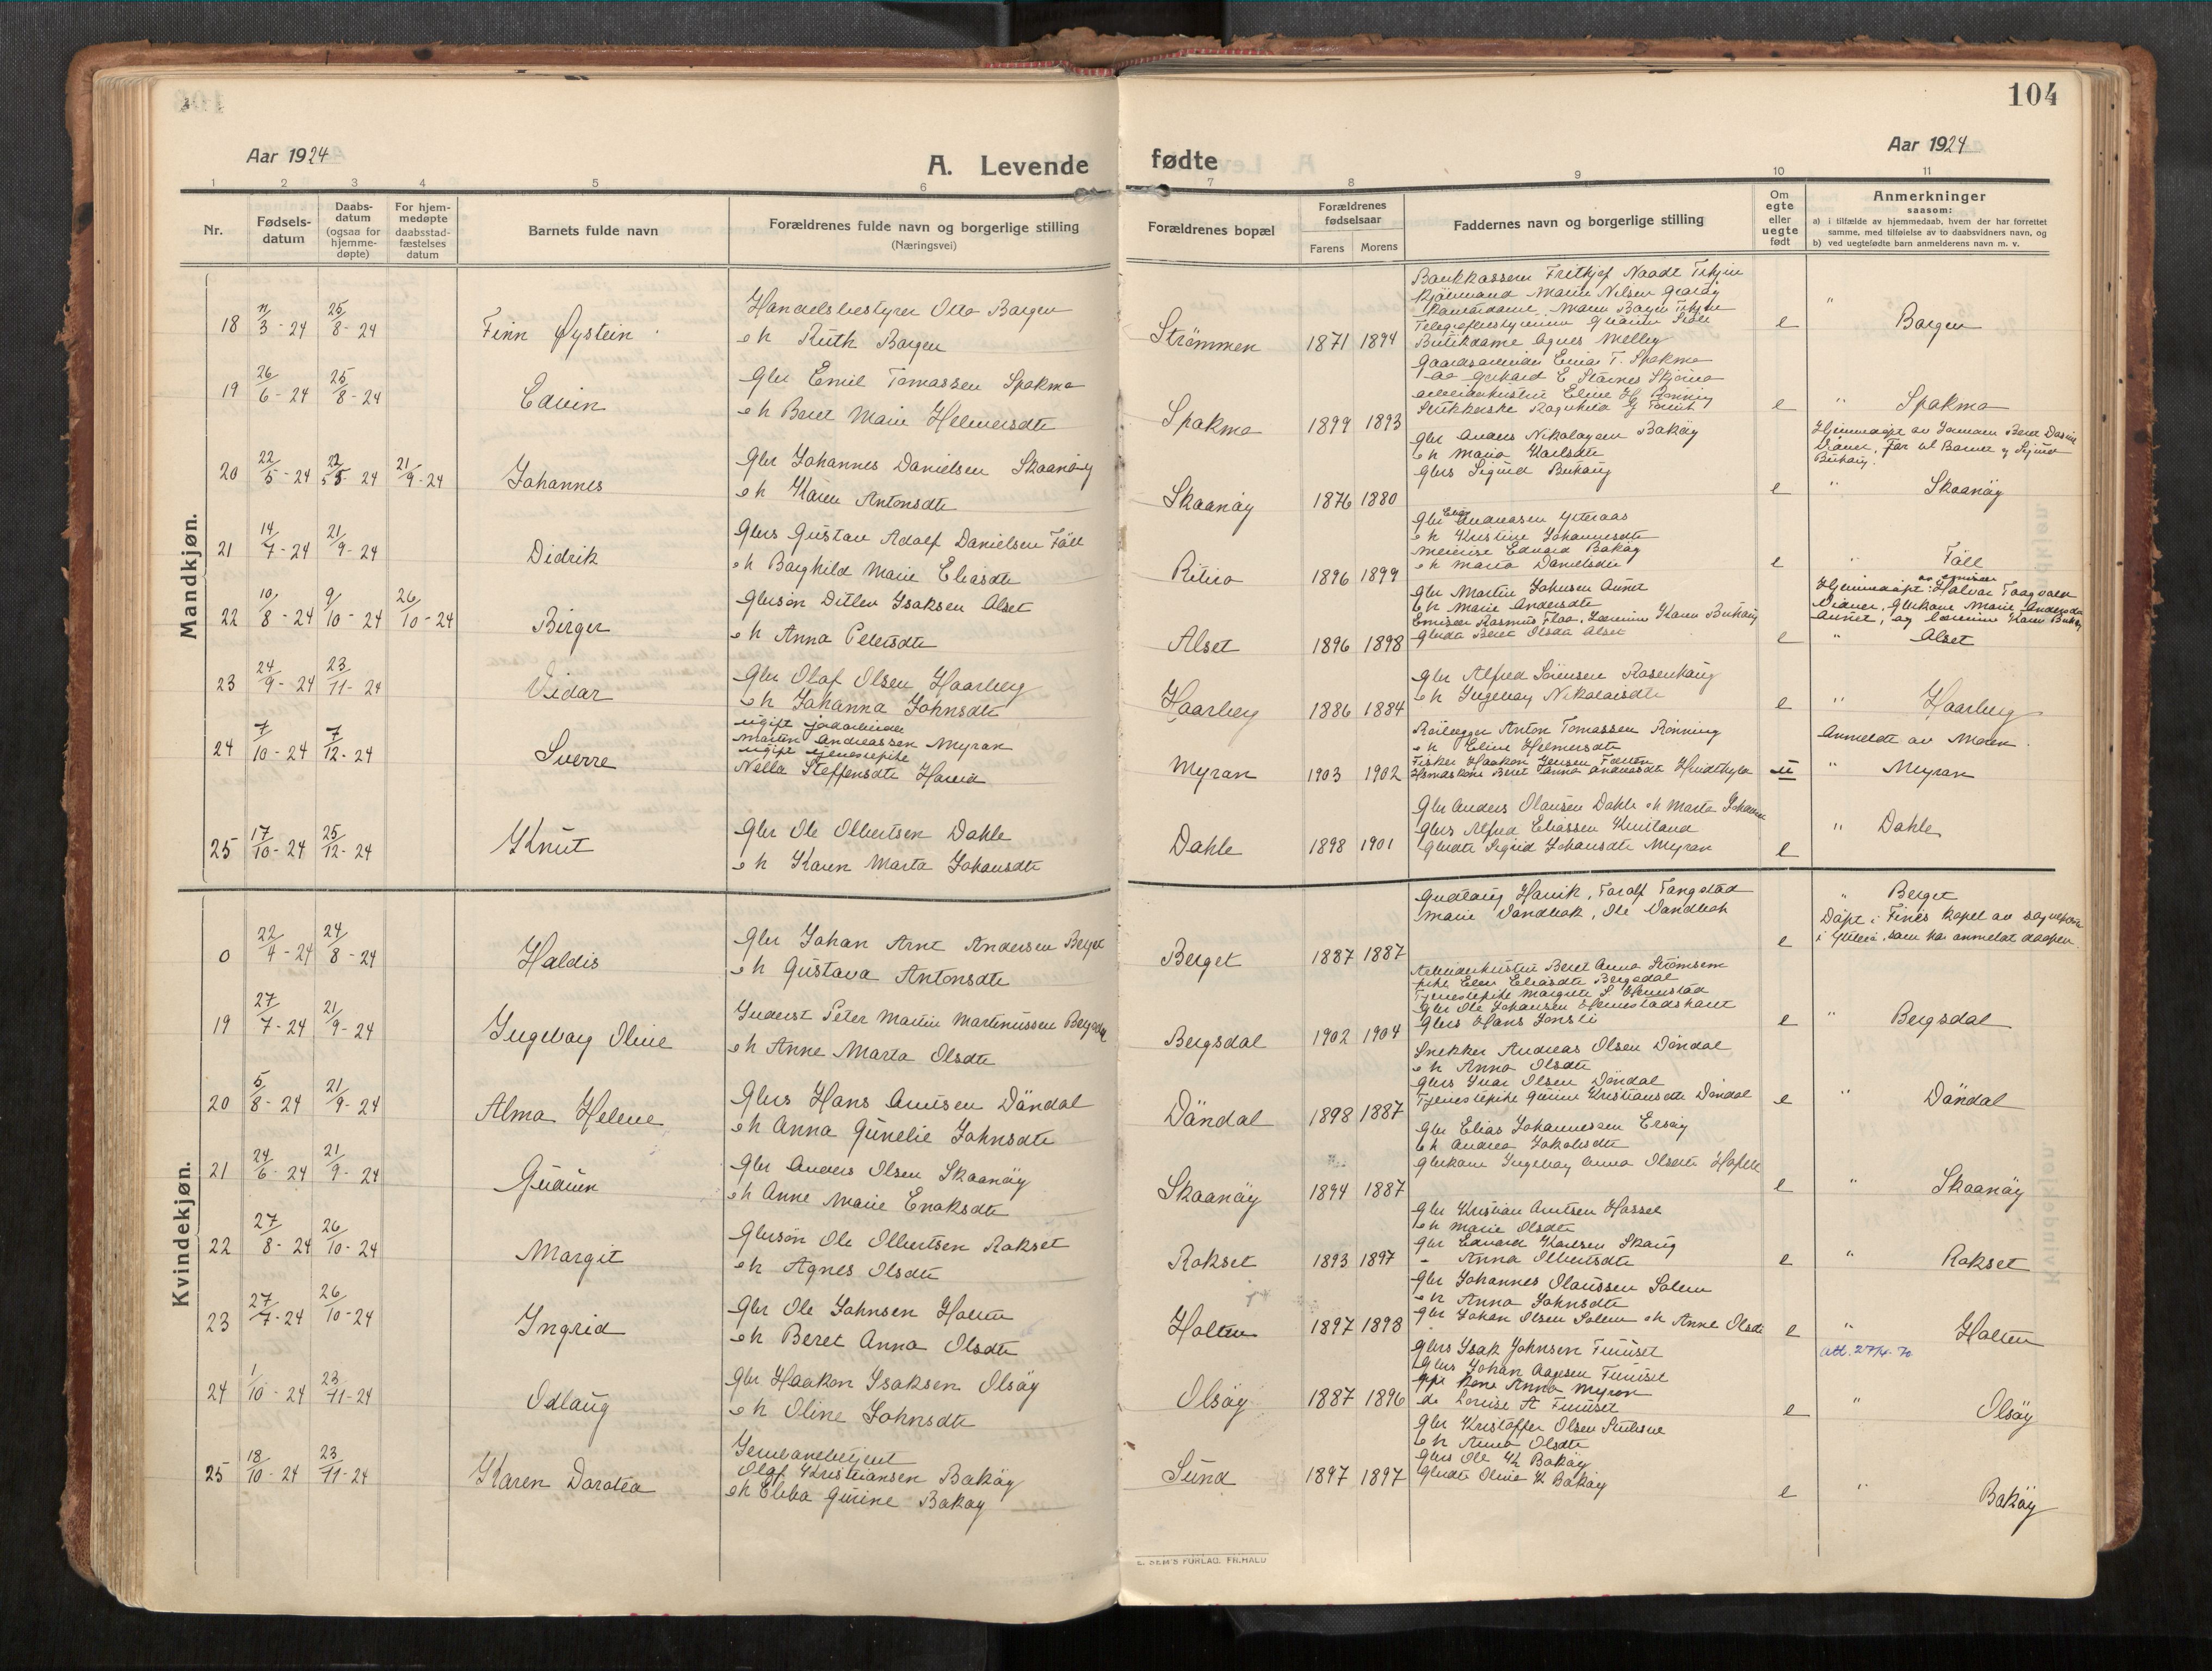 104
Aar 1924
A. Levende
fødte
Aar 1924
1 2 3 4 5 6 7 8 9 10 11
Nr.
Fødsels-
datum
Daabs-
datum
(ogsaa for
hjemme-
døpte)
For hjem-
medøpte
daabsstad-
fæstelses
datum
Barnets fulde navn
Forældrenes fulde navn og borgerlige stilling
(Næringsvei)
Forældrenes bopæl
Forældrenes
fødselsaar
Farens Morens
Faddernes navn og borgerlige stilling
Om
egte
eller
uegte
født
Anmerkninger
saasom:
a) i tilfælde av hjemmedaab, hvem der har forrettet
samme, med tilføielse av to daabsvidners navn, og
b) ved uegtefødte barn anmelderens navn m. v.
Mandkjøn.
18 11/3 - 24 25/8 - 24 Finn Øystein
Handelsbestyrer Otto Borgen
o h Ruth Borgen
Strømmen 1871 1894
Butikdame Agnes Melby
e " Borgen
19 26/6 - 24 25/8 - 24 Edvin
Gbr Emil Tomassen Spakmo
o h Beret Marie Helmersdtr
Spakmo 1899 1893
e " Spakmo
20 22/5 - 24 22/5 - 24 21/9 - 24 Johannes
Gbr Johannes Danielsen Skaanöy
o h Karen Antonsdtr
Skaanöy 1876 1880
Gbr Anders Nikolaysen Baköy
o h Maria Karlsdtr
Gbrs Sigurd Buhaug
e " Skaanöy
21 14/7 - 24 21/9 - 24 Didrik
Gbrs Gustav Adolf Danielsen Föll
o h Borghild Marie Eliasdtr
Ritico 1896 1899
Gbr Elias Andreasen Yteraas
o h Kristine Johannesdtr
Edvard Baköy
o h Maria Danielsdtr
e " Föll
22 10/8 - 24 9/10 - 24 26/10 - 24 Birger
Gbrsøn Ditlev Isaksen Alset
o h Anna Petersdtr
Alset 1896 1898
Gbr Martin Johnsen Aunet
o h Marie Andersdtr
Emisær Rasmus Flaa, Lærerinne Karen Buhaug
Gbrdtr Beret Olsdtr Alset
e " Alset
23 24/9 - 24 23/11 - 24 Vidar
Gbr Olaf Olsen Haarberg
o h Johanna Johnsdtr
Haarberg 1886 1884
Gbr Alfred Sørensen Rosenhaug
o h Ingeborg Nikolaisdtr
e " Haarberg
24 7/10 - 24 7/12 - 24 Sverre
ugift jordarbeider
Martin Andreassen Myran
ugift tjenestepike
Nella Steffensdtr
Myran 1903 1902
Anton Tomassen Rönning
o h Eline Helmersdtr
Fisker Haakon Jensen
u Anmeldt av Moren.
" Myran
25 17/10 - 24 25/12 - 24 Knut
Gbr Ole Olbertsen Dahle
o h Karen Marta Johansdtr
Dahle 1898 1901
Gbr Anders Olausen Dahle o h Marta
Gbrs Alfred Eliassen
Gbrdtr Sigrid Johansdtr Myran
e " Dahle
Kvindekjøn.
0 22/4 - 24 24/8 - 24 Haldis
Gbr Johan Arnt Andersen Berget
o h Gustava Antonsdtr
Berget 1887 1887
Gudlaug Hanik, Toralf Tangstad
Marie Vandbak, Ole Vandbak
e " Berget
Döpt i Fines kapel av sogneprest
som har anmeldt daapen.
19 27/7 - 24 21/9 - 24 Ingeborg Oline
Inderst Peter Martin Martinussen Bergsdal
o h Anne Marta Olsdtr
Bergsdal 1902 1904
Arbeiderhustru Beret Anna Strømsem
pike Elen Eliasdtr Bergsdal
Tjenestepike Margrete S. Hemstad
Gbr Ole Johansen
Gbrs Hans Jonsli
e " Bergsdal
20 5/8 - 24 21/9 - 24 Alma Helene
Gbrs Hans Arntsen Döndal
o h Anna Gunelie Johnsdtr
Döndal 1898 1887
Snekker Andreas Olsen Döndal
o h Anna Olsdtr
Gbrs Ivar Olsen Döndal
Tjenestepike Gurine Kristiansdtr Döndal
e " Döndal
21 24/6 - 24 21/9 - 24 Gudrun
Gbr Anders Olsen Skaanöy
o h Anne Marie Enoksdtr
Skaanöy 1894 1887
Gbr Elias Johannessen Ersöy
o h Andrea Jakobsdtr
Gbrkone Ingeborg Anna Olsdtr
e " Skaanöy
22 27/8 - 24 26/10 - 24 Margit
Gbrsøn Ole Olbertsen Rokset
o h Agnes Olsdtr
Rokset 1893 1897
Gbr Kristian Arntsen Hassel
o h Marie Olsdtr
Gbr Edvard Karlsen Skaug
- Anna Olbertsdtr
e " Rokset
23 27/7 - 24 26/10 - 24 Ingrid
Gbr Ole Johnsen Holten
o h Beret Anna Olsdtr
Holten 1897 1898
Gbr Johannes Olaussen Solem
o h Anna Johnsdtr
Gbr Johan Olsen Solem o h Anne Olsdtr
e " Holten
24 1/10 - 24 23/11 - 24 Odlaug
Gbr Haakon Isaksen Olsöy
o h Oline Johnsdtr
Olsöy 1887 1896
Gbrs Isak Johnsen Fuuset
Gbrs Johan Aagesen Fuuset
Kone Anna Myran
do Lovise A Fuuset
e att. 27/4-70.
" Olsöy
25 18/10 - 24 23/11 - 24 Karen Dorotea
Jernbanebetjent
Olaf Kristiansen Baköy
o h Ebba Gurine Bakøy
Sund 1897 1897
Gbr Kristoffer Olsen
o h Anna Olsdtr
Gbrs Ole K Bakøy
Gbrdtr Oline K Bakøy
e " Baköy
E. SEM'S FORLAG. FR.HALD